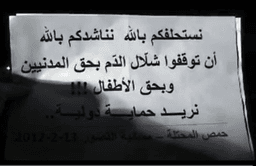 نستحلفكم بالله نناشدكم بالله
أن توقفوا شلّال الدّم بحق المدنيين
وبحق الأطفال !!!
نريد حماية دولية..
حمص المحتلة – القصور 13-2-2012